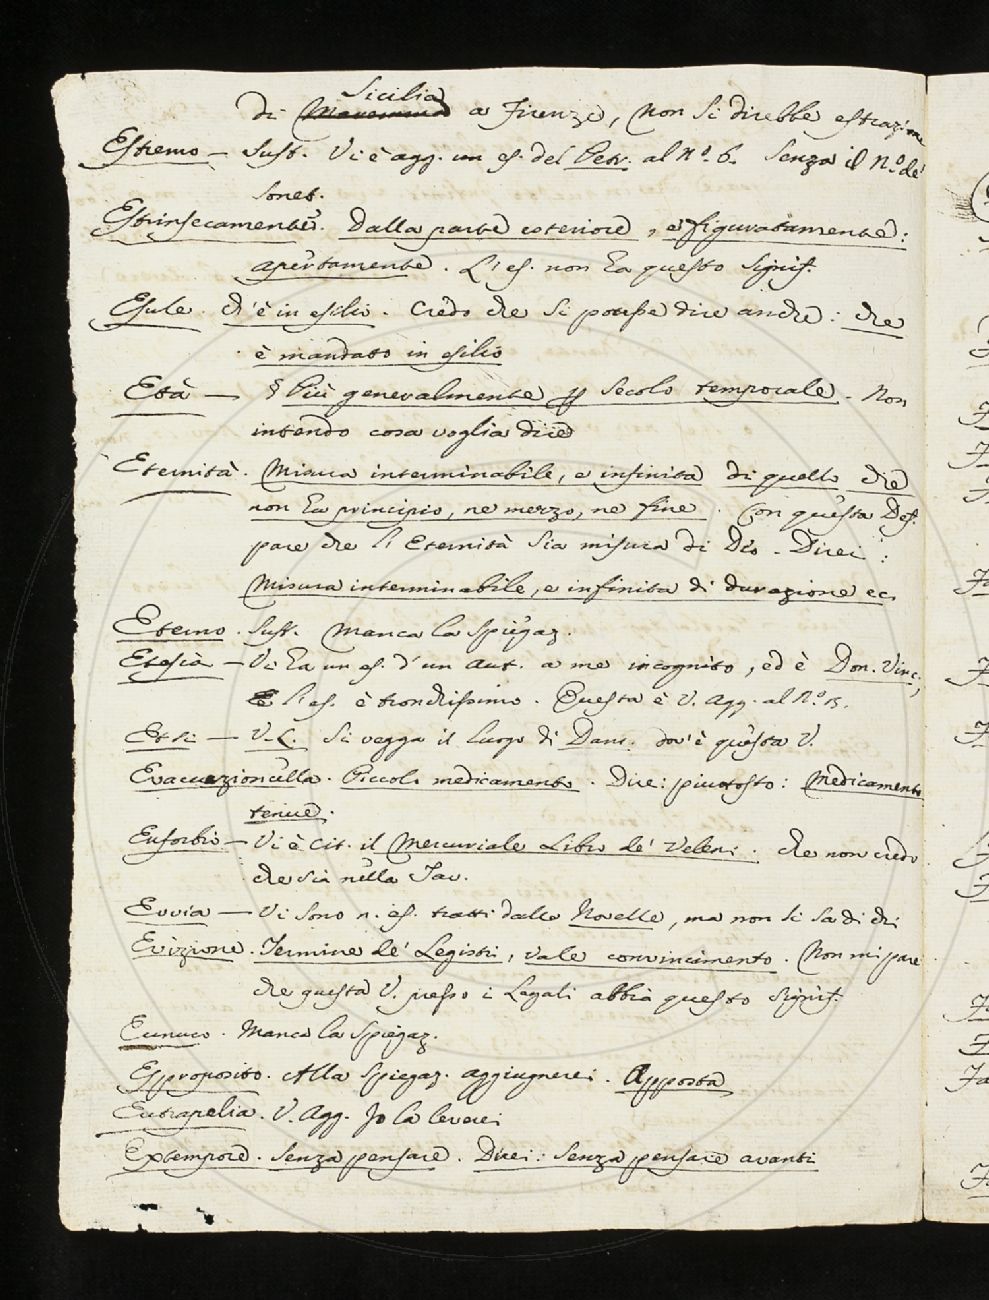 Sicilia
di Maremma a Firenze, non si direbbe estrazione
Estremo — Sust. Vi è agg. un es. del Petr. al N.º 6. senza il N.º de'
Sonet.
Estrinsecamente. Dalla parte esteriore, e figuratamente:
apertamente. L'es. non ha questo signif.
Esule. Ch'è in esilio. Credo che si potesse dire anche: che
è mandato in esilio
Età — § Più generalmente p secolo temporale. Non
intendo cosa voglia dire
Eternità. Misura interminabile, e infinita di quello che
non ha principio, ne mezzo, ne fine. Con questa Def.
pare che l'Eternità sia misura di Dio. Direi:
Misura interminabile, e infinita di durazione ec.
Eterno. Sust. Manca la spiegaz.
Etesia — Vi ha un es. d'un Aut. a me incognito, ed è Don. Vinc.,
E l'es. è tronchissimo. Questa è V. Agg. al N.º
Etsi — V. L. Si vegga il luogo di Dant. dov'è questa V.
Evacuazioncella. Piccolo medicamento. Dire: piuttosto: Medicamento
tenue.
Euforbio — Vi è cit. il Mercuriale Libro de' Veleni. che non credo
che sia nella Tav.
Evvia — Vi sono n. es. tratti dalle Novelle, ma non si sa di chi
Evizione. Termine de' Legisti, vale convincimento. Non mi pare
che questa V. presso i Legali abbia questo signif.
Eunuco. Manca la spiegaz.
Exproposito. Alla spiegaz. aggiugnerei. Apposta
Eutrapelia. V. Agg. Io la leverei
Extempore. Senza pensare. Direi: Senza pensare avanti